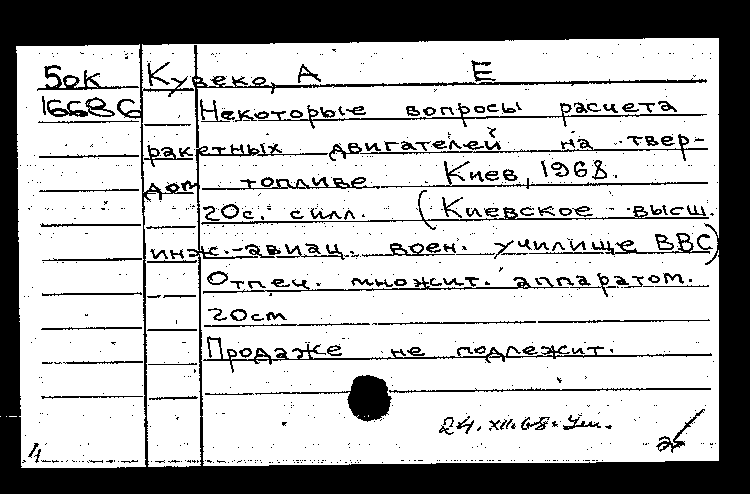 Бок Кувеко, А Е
16686 Некоторые вопросы расчета
ракетных двигателей на твер-
дом топливе. Киев, 1968.
20с. силл. (Киевское высш.
инж.-авиац. воен. училище ВВС)
Отпеч. множит. аппаратом.
20см
Продаже не подлежит.
24.XII.68.
4